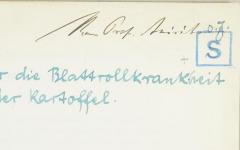 Prof.
S
r die Blattrollkrankheit
der Kartoffel.